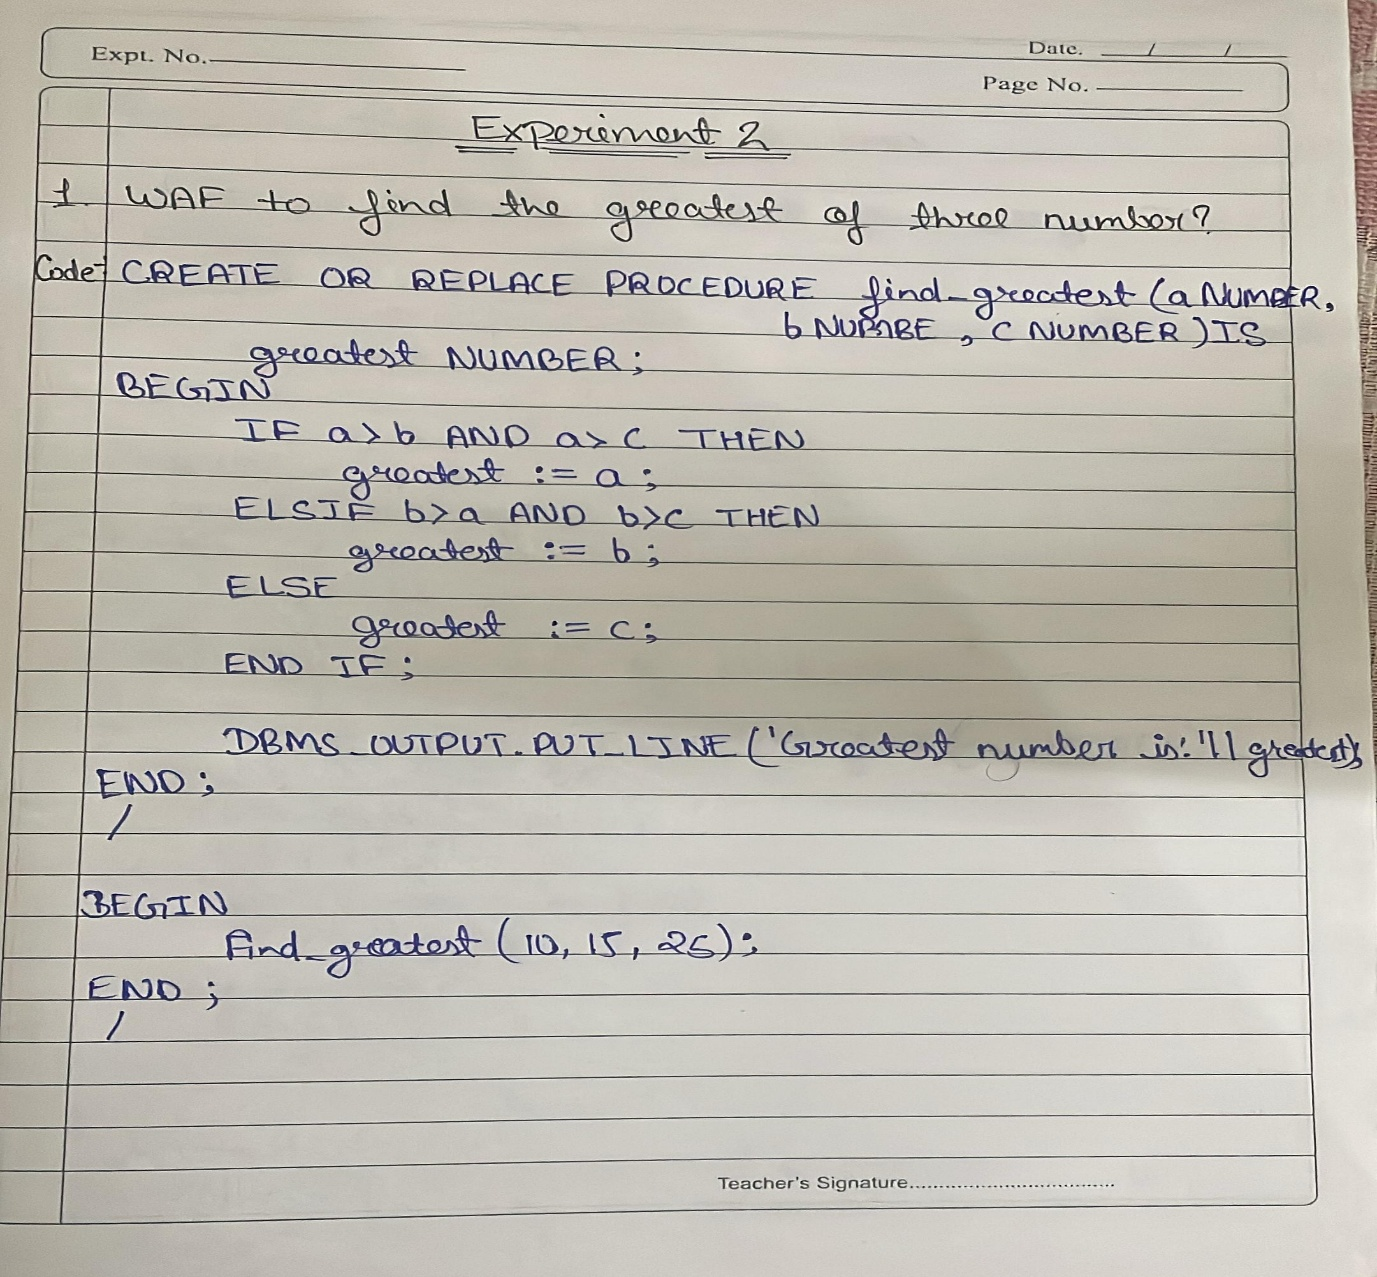 Expt. No.
Date. / /
Page No.
Experiment 2
1. WAF to find the greatest of three number?
Code:- CREATE OR REPLACE PROCEDURE find_greatest (a NUMBER,
b NUMBE, c NUMBER) IS
greatest NUMBER;
BEGIN
IF a>b AND a>c THEN
greatest := a;
ELSIF b>a AND b>c THEN
greatest := b;
ELSE
greatest := c;
END IF;
DBMS_OUTPUT.PUT_LINE ('Greatest number is: '|| greatest);
END;
/
BEGIN
find_greatest (10, 15, 25);
END;
/
Teacher's Signature....................................